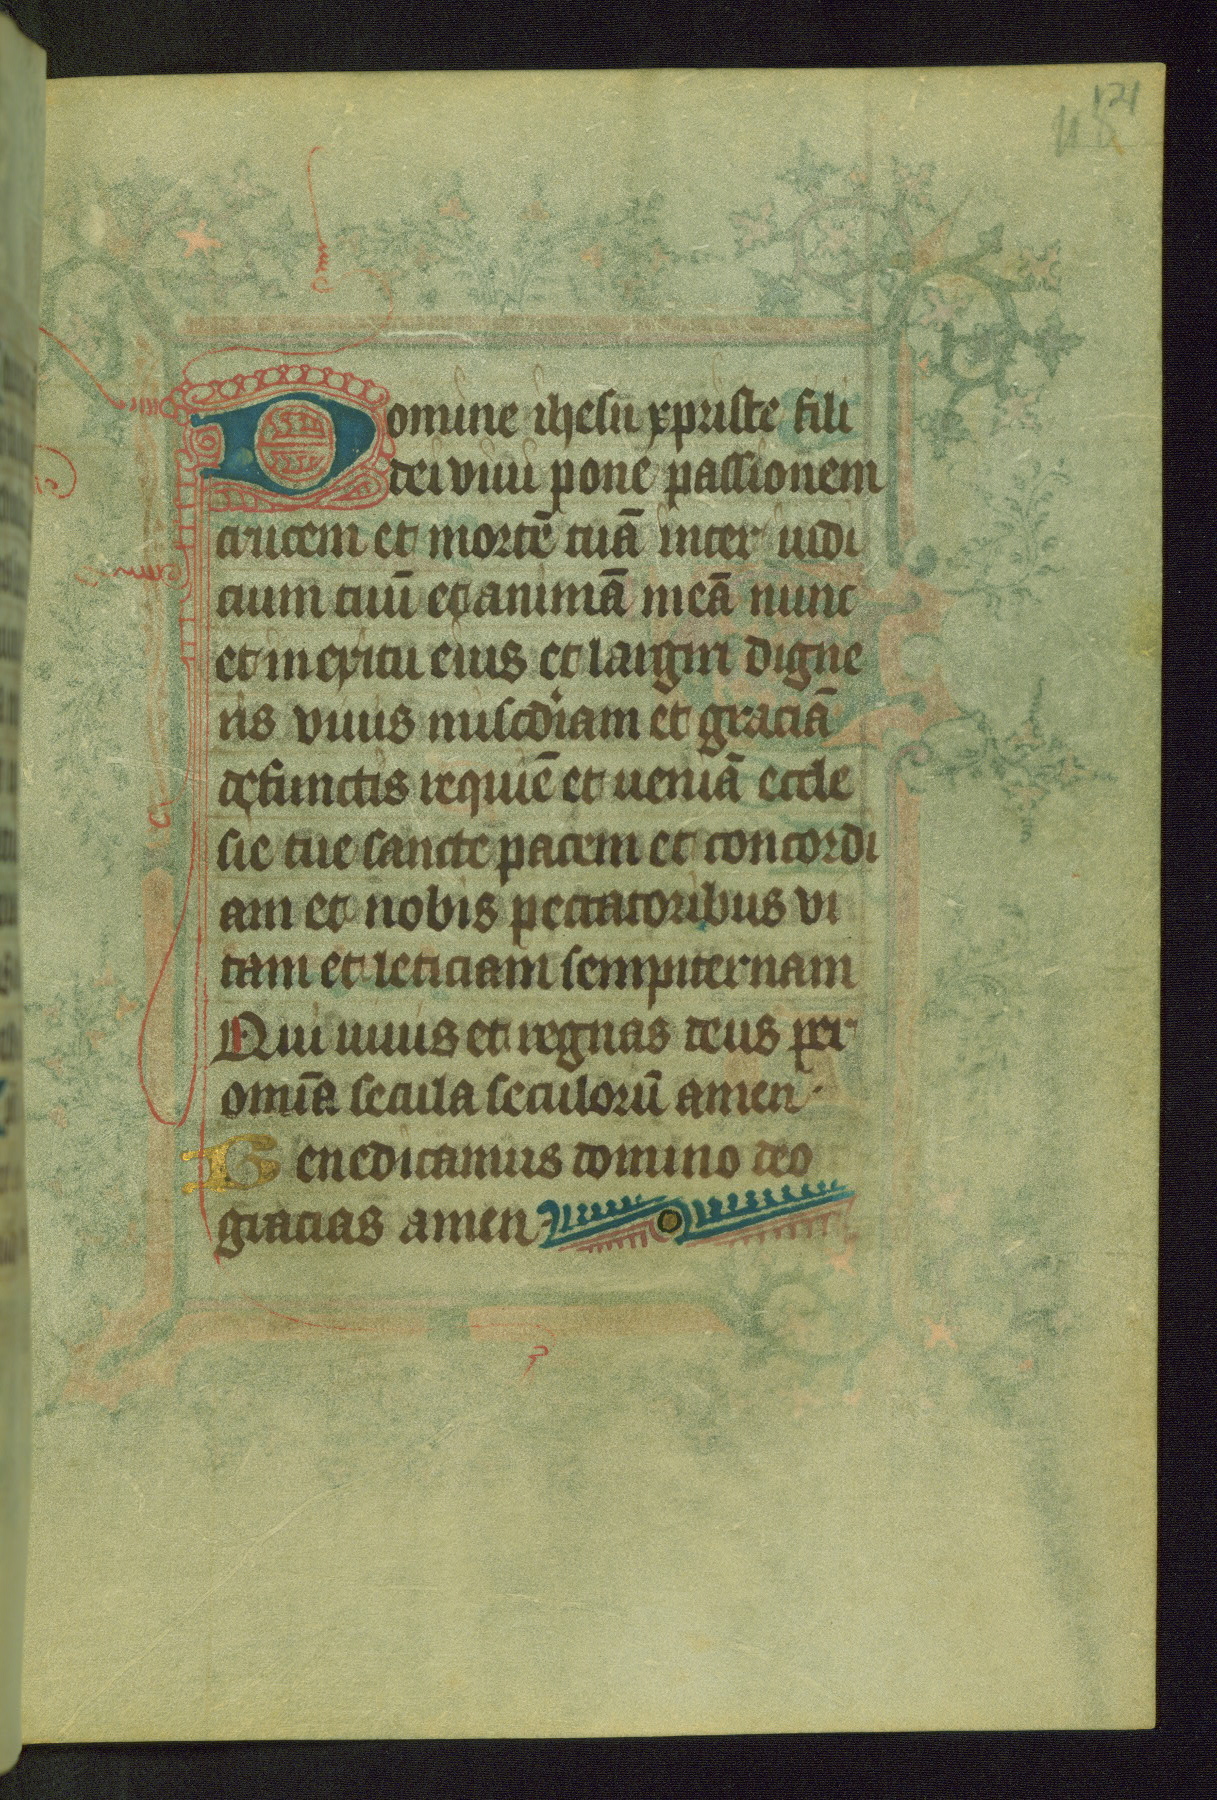 121
Domine ihesu xpriste fili
dei viui pone passionem
crucem et mortē tuā inter iudi
cium tuū et animā meā nunc
et in exitu eius et largiri digne
ris viuis miscdiam et graciā
defunctis requiē et ueniā eccle
sie tue sancte pacem et concordi
am et nobis peccatoribus vi
tam et leticiam sempiternam
Qui uiuis et regnas deus per
omīa secula seculorū amen ·
Benedicamus domino deo
gracias amen